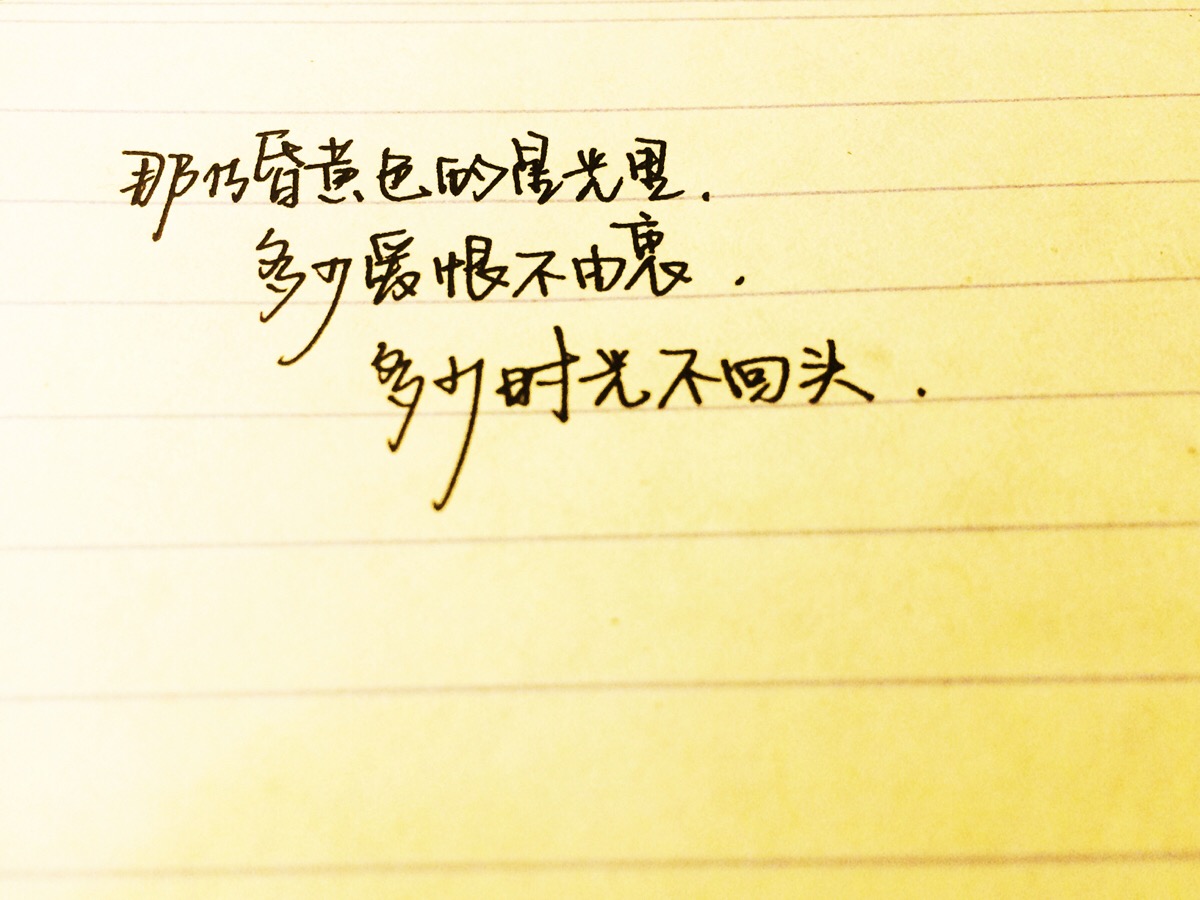 那份昏黄色的星光里.
多少爱恨不由衷.
多少时光不回头.